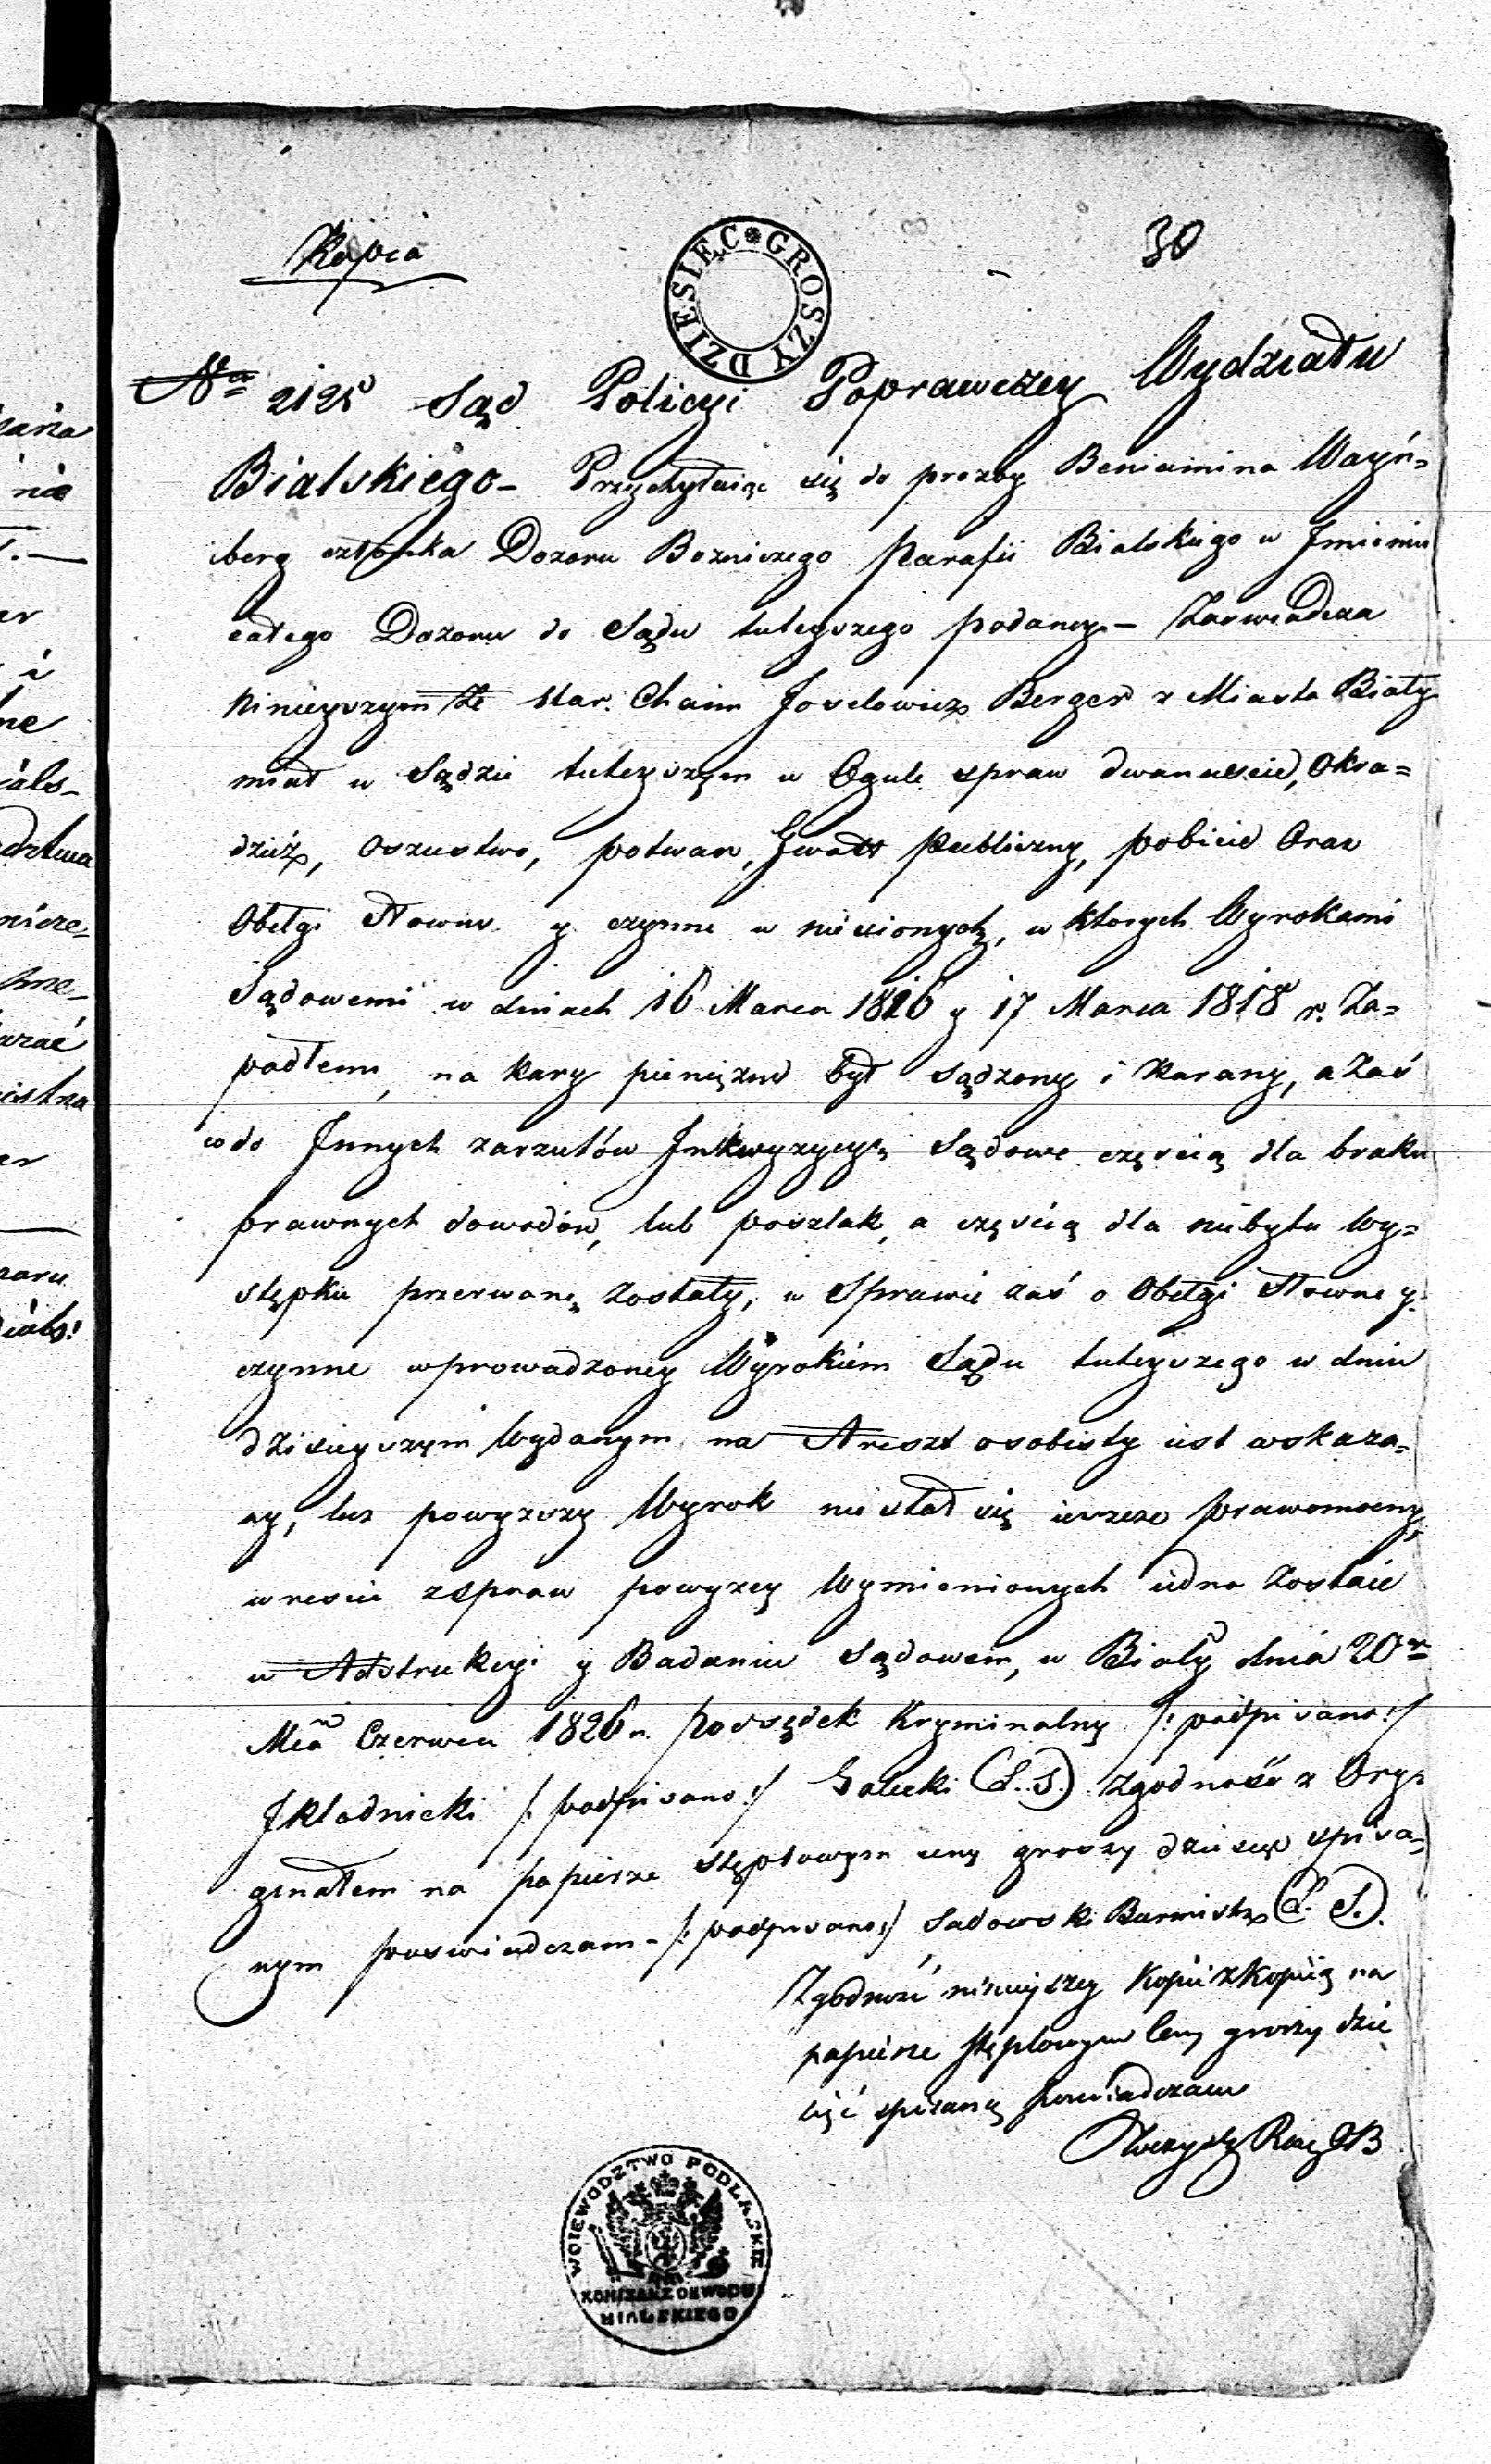 Kopia
30
DZIESIĘĆ GROSZY
Nro 2125 Sąd Policyi Poprawczey Wydziału
Bialskiego - Przychylaiąc się do prozby Beniamina Wayn=
berg członka Dozoru Bozniczego Parafii Bialskiego w Jmieniu
całego Dozoru do Sądu tuteyszego podaney - Zaswiadcza
ninieyszym że Star. Chaim Joselowicz Berger z Miasta Biały
miał w Sądzie tuteyszym w Ogule spraw dwanascie, O kra=
dzież, oszustwo, potwarz, Gwałt Publiczny, pobicie Oraz
Obelgi Słowne y czynne wniesionych, w ktorych Wyrokami
Sądowemi w dniach 16 Marca 1816 y 17 Marca 1818 r. Za=
padłemi, na kary pieniężne był sądzony i karany, a zaś
co do Jnnych zarzutów Jnkwyzycye Sądowe częscią dla braku
prawnych dowodów, lub poszlak, a częscią dla niebytu Wy=
stępku przerwane zostały, w Sprawie zaś o Obelgi Słowne y
czynne wprowadzoney Wyrokiem Sądu tuteyszego w dniu
dzisieyszym Wydanym na Areszt osobisty iest wskaza=
ny, lecz powyzszy Wyrok nie stał się ieszcze prawomocny,
w rescie z spraw powyzey Wymienionych iedna zostaie
w Jnstrukcyi y Badaniu Sądowem, w Biały dnia 20go
Mca Czerwca 1826 r. Podsędek Kryminalny /: podpisano :/
Składnicki /: podpisano :/ Galecki (L. S.) Zgodność z Ory=
ginałem na papierze stęplowym ceny groszy dziesięć spisa=
nym poswiadczam - /: podpisano :/ Sadowski Burmistrz (L. S.)
Zgodność ninieyszey Kopii z Kopią na
papierze stęplowym Ceny groszy dzie
sięć spisaną poswiadczam
WOIEWODZTWO PODLASKIE
KOMISARZ OBWODU
BIALSKIEGO